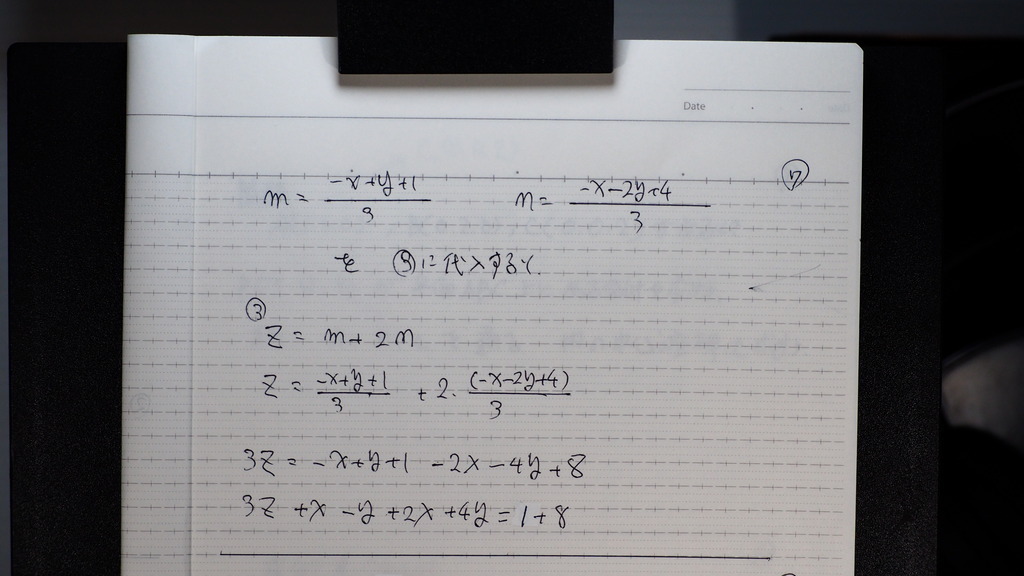 Date . .
⑦
m = (-x+y+1)/3  n = (-x-2y+4)/3
を ③に代入すると.
③
Z = m + 2n
Z = (-x+y+1)/3 + 2·(-x-2y+4)/3
3Z = -x+y+1 -2x-4y+8
3Z +x -y +2x +4y = 1+8